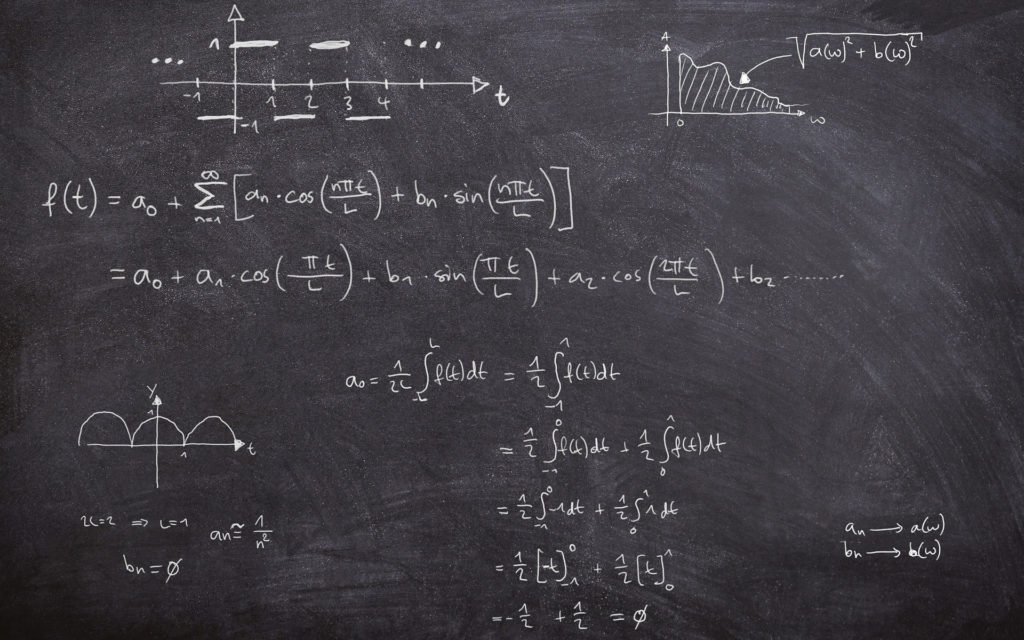 1 ...
...
-1 1 2 3 4 t
-1
A √(a(ω)² + b(ω)²)
0 ω
f(t) = a₀ + ∑ₙ₌₁^∞ [aₙ · cos(nπt/L) + bₙ · sin(nπt/L)]
= a₀ + a₁ · cos(πt/L) + b₁ · sin(πt/L) + a₂ · cos(2πt/L) + b₂ ........
a₀ = 1/2L ∫_-L^L f(t)dt = 1/2 ∫_-1^1 f(t)dt
= 1/2 ∫_-1^0 f(t)dt + 1/2 ∫_0^1 f(t)dt
= 1/2 ∫_-1^0 -1dt + 1/2 ∫_0^1 1dt
= 1/2 [-t]_-1^0 + 1/2 [t]_0^1
= -1/2 + 1/2 = ∅
y
1
1 t
2L=2 ⇒ L=1 aₙ ≅ 1/n²
bₙ = ∅
aₙ → a(ω)
bₙ → b(ω)